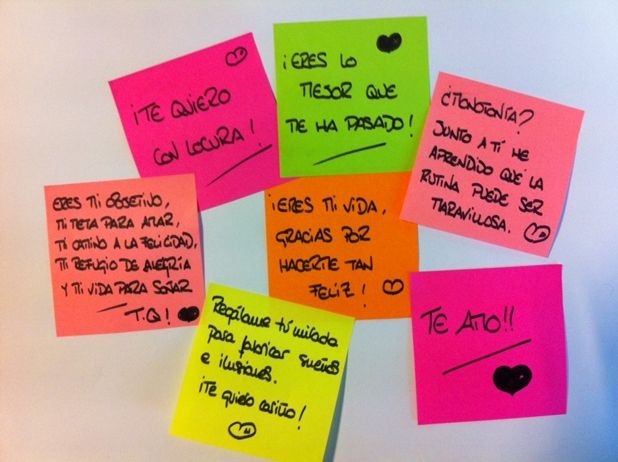 ¡TE QUIERO
CON LOCURA!
¡ERES LO
MEJOR QUE
ME HA PASADO!
¿MONOTONÍA?
JUNTO A TÍ HE
APRENDIDO QUÉ LA
RUTINA PUEDE SER
MARAVILLOSA.
ERES MI OBJETIVO,
MI META PARA AMAR,
MI CAMINO A LA FELICIDAD,
MI REFUGIO DE ALEGRÍA
Y MI VIDA PARA SOÑAR
T.Q!
¡ERES MI VIDA,
GRACIAS POR
HACERME TAN
FELIZ!
Regálame tú mirada
para fabricar sueños
e ilusiones.
¡Te quiero cariño!
TE AMO!!